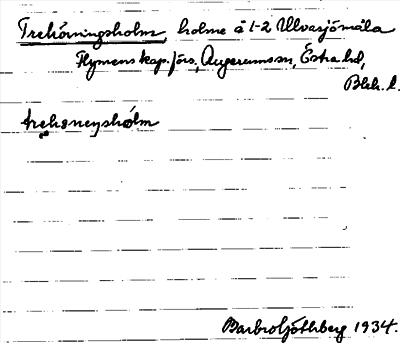 Trehörningsholm, holme å 1-2 Ulvasjömåla
Flymens kap.förs, Augerums sn, Östra hd,
Blek. l.
trehørneyshólm
Barbro Ljöthberg 1934.